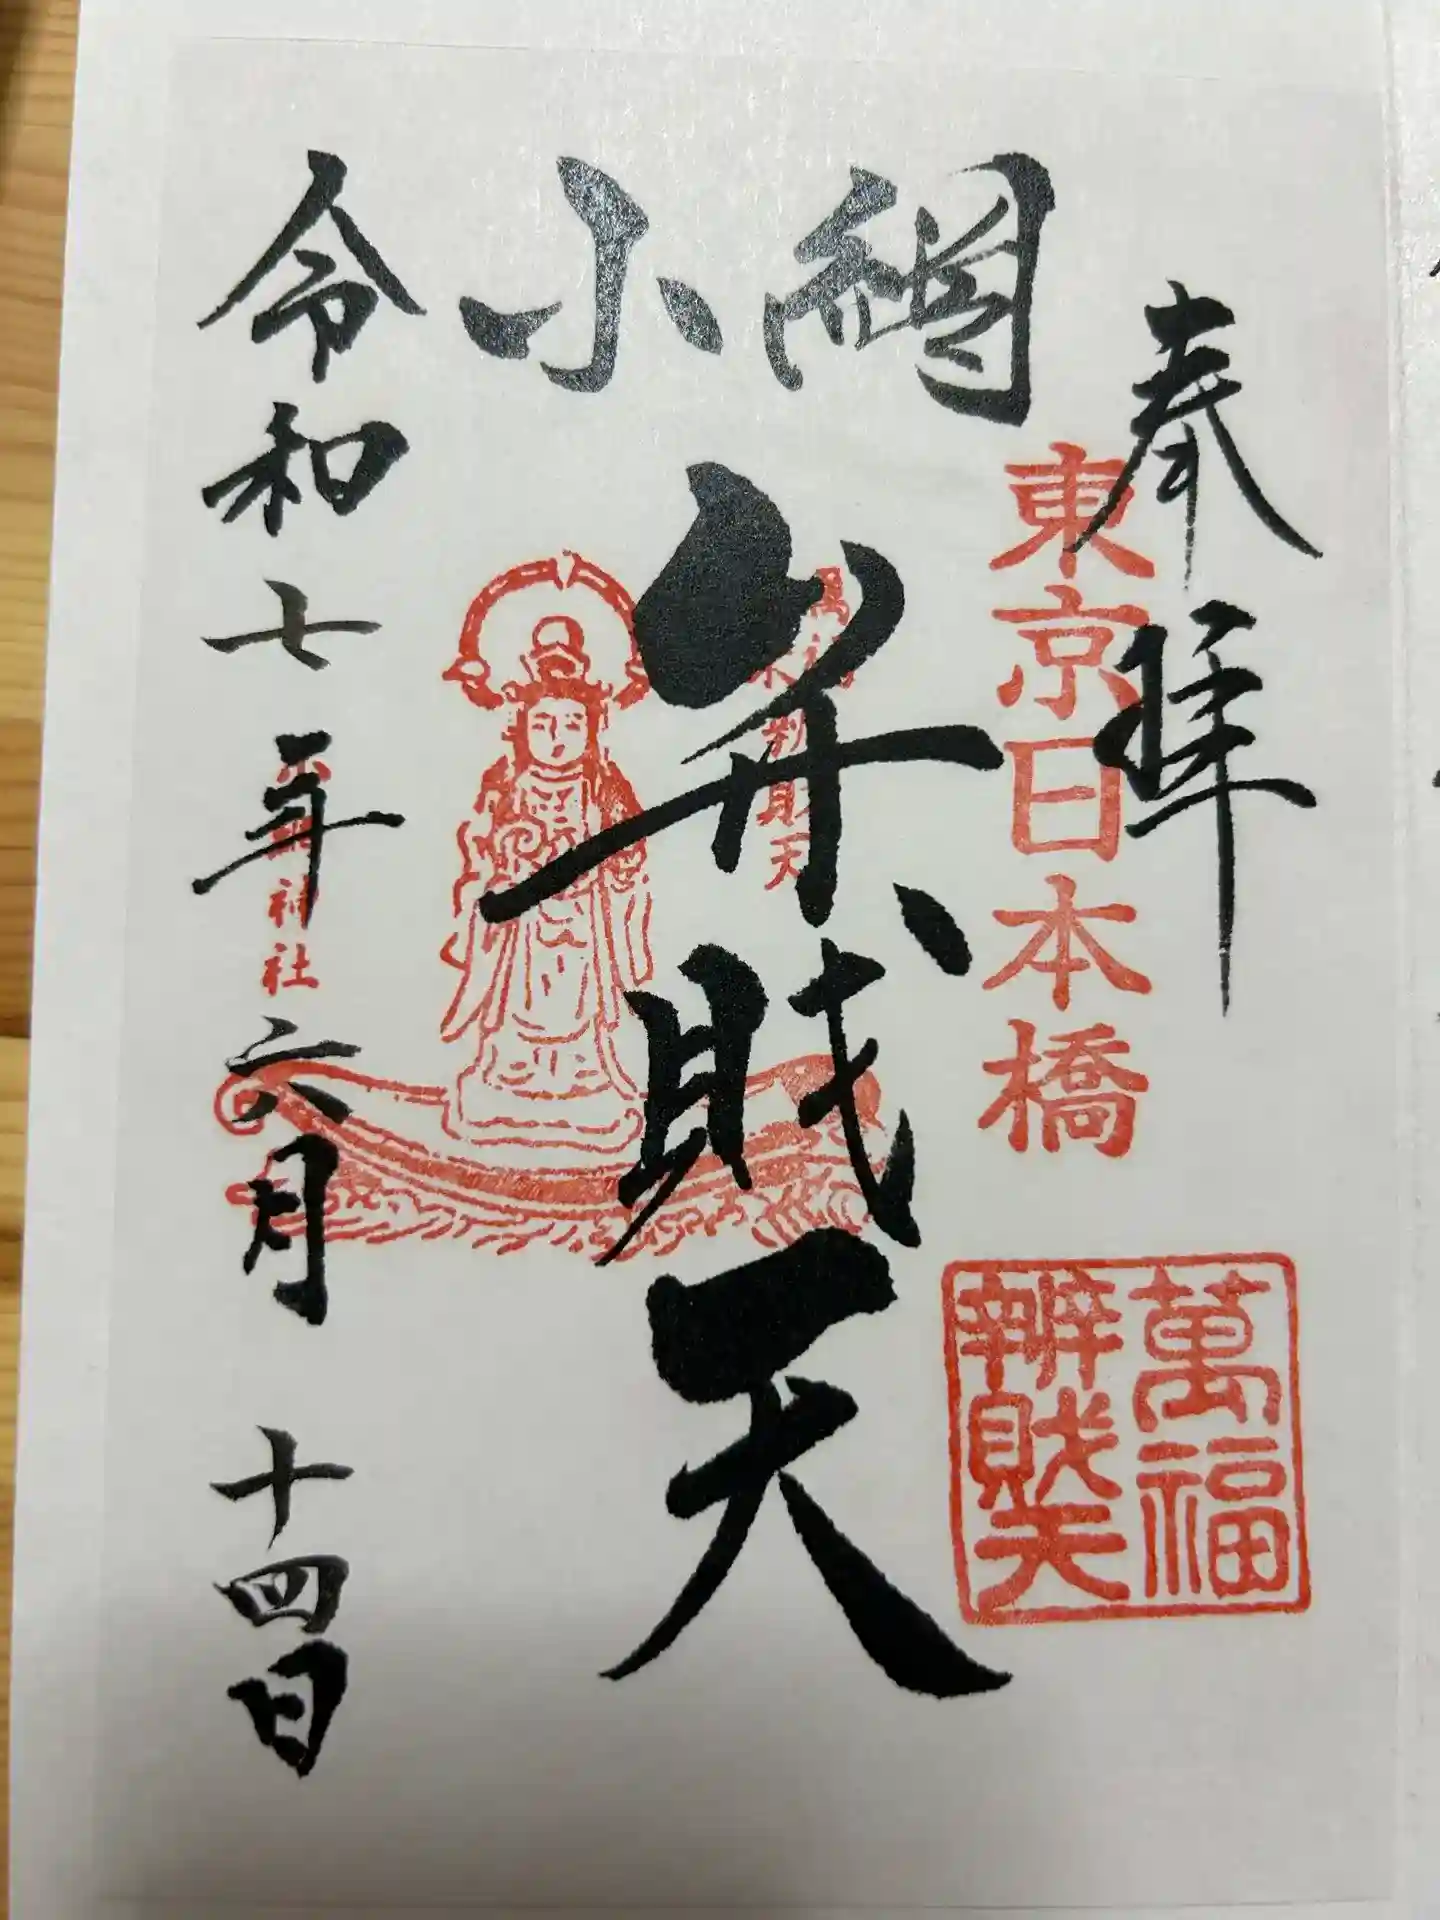 奉拝
東京日本橋
萬福
辨財天
網小
弁財天
神社
令和七年六月十四日